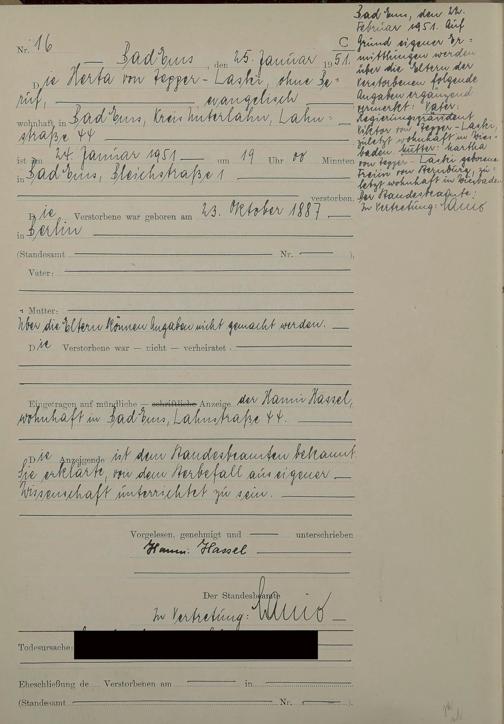 Nr. 16
C
Bad Ems, den 25. Januar 1951.
Die Herta von Tepper-Laski, ohne Be-
ruf, evangelisch
wohnhaft in Bad Ems, Kreis Unterlahn, Lahn-
straße 44
ist am 24. Januar 1951 um 19 Uhr 00 Minuten
in Bad Ems, Bleichstraße 1
verstorben.
Die Verstorbene war geboren am 23. Oktober 1887
in Berlin
(Standesamt Nr. ),
Vater:
Mutter:
Über die Eltern können Angaben nicht gemacht werden.
Die Verstorbene war — nicht — verheiratet
Eingetragen auf mündliche — schriftliche Anzeige der Hanni Hassel,
wohnhaft in Bad Ems, Lahnstraße 44.
Die Anzeigende ist dem Standesbeamten bekannt.
Sie erklärte, von dem Sterbefall aus eigener
Wissenschaft unterrichtet zu sein.
Vorgelesen, genehmigt und unterschrieben
Hanni Hassel
Der Standesbeamte
In Vertretung:
Todesursache:
Eheschließung de Verstorbenen am in
(Standesamt Nr. ).
Bad Ems, den 22.
Februar 1951. Auf
Grund eigener Er-
mittlungen werden
über die Eltern der
Verstorbenen folgende
Angaben ergänzend
vermerkt: Vater:
Regierungspräsident
Viktor von Tepper-Laski,
zuletzt wohnhaft in Wies-
baden. Mutter: Martha
von Tepper-Laski geborene
Freiin von Sternburg, zu-
letzt wohnhaft in Wiesbaden
Der Standesbeamte:
In Vertretung: